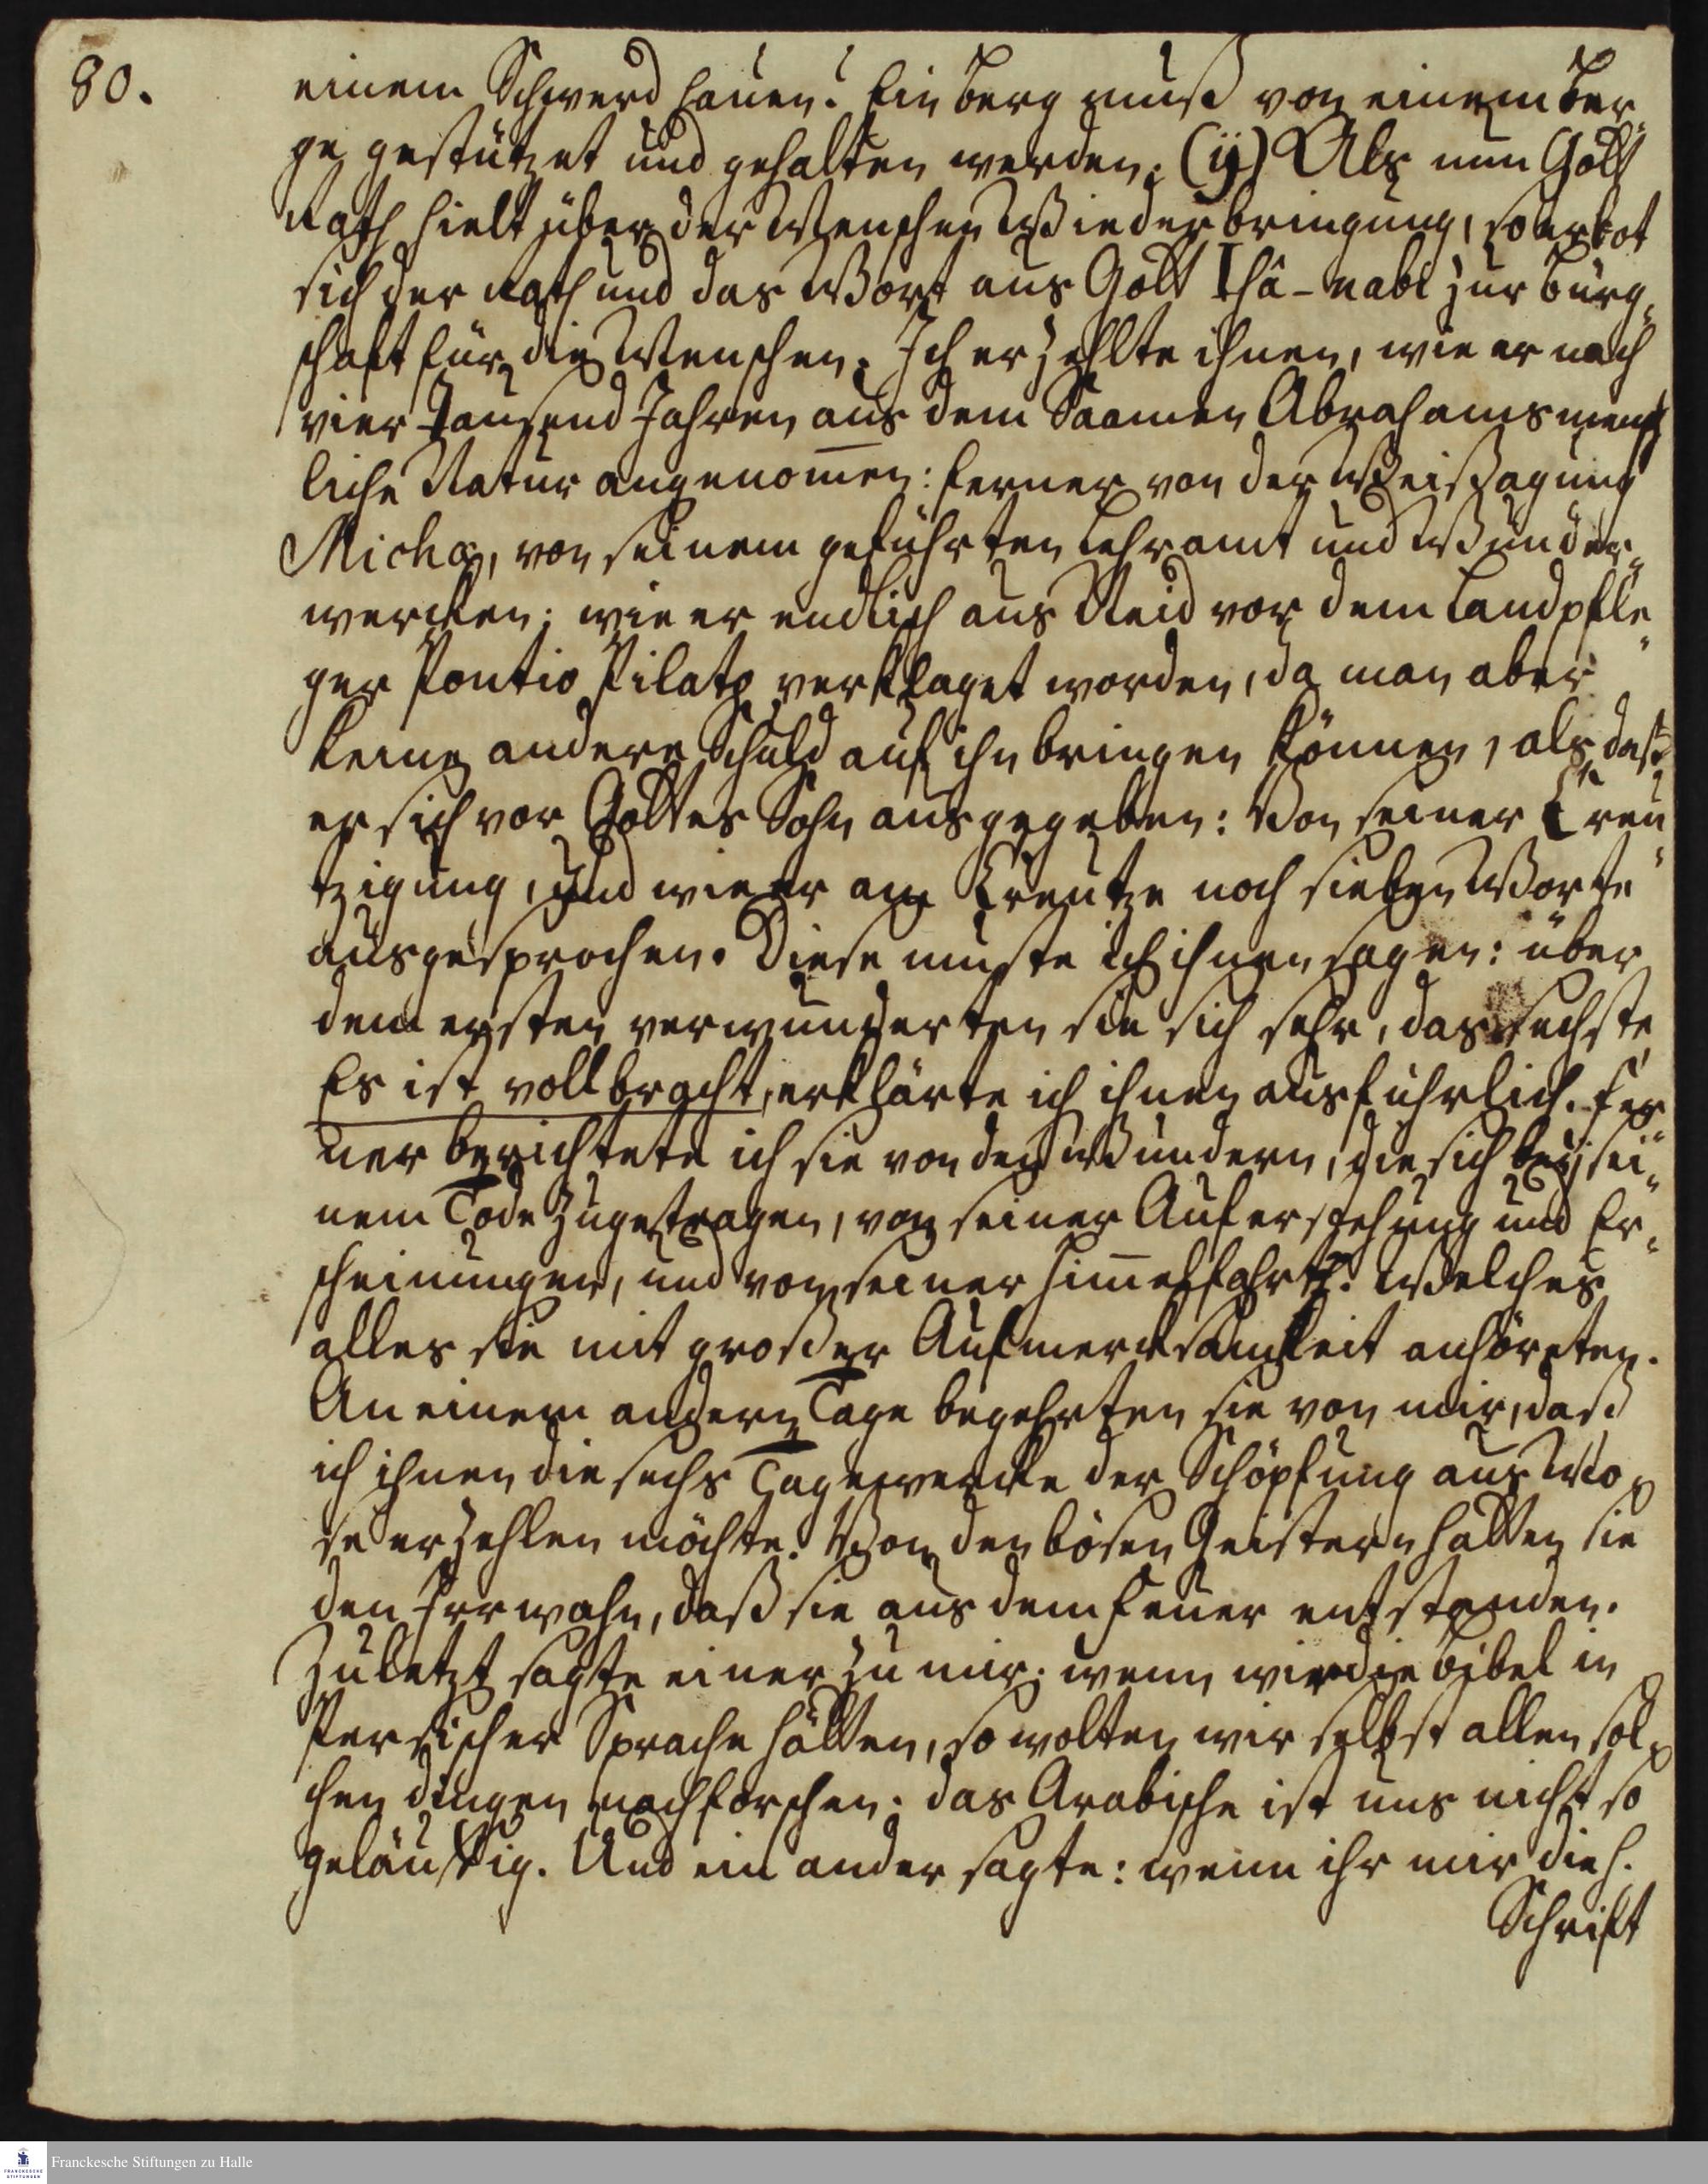 80.
einem Schwerd hauen? Ein Berg muß von einem Ber„
ge gestützet und gehalten werden. (ij) Als nun Gott
Rath hielt über der Menschen Wiederbringung, so erbot
sich der Rath und das Wort aus Gott Ishâ-nabi zur Bürg„
schaft für die Menschen. Ich erzehlte ihnen, wie er nach
vier Tausend Jahren aus dem Saamen Abrahams mensch
liche Natur angenom̄en: ferner von der Weissagung
Michæ, von seinem geführten Lehramt und Wunder„
wercken; wie er endlich aus Neid vor dem Landpfle„
ger Pontio Pilato verklaget worden, da man aber
keine andere Schuld auf ihn bringen können, als daß
er sich vor Gottes Sohn ausgegeben: Von seiner Creu„
tzigung, und wie er am Creutze noch sieben Worte
ausgesprochen. Diese muste ich ihnen sagen: über
dem ersten verwunderten sie sich sehr, das sechste
Es ist vollbracht, erklärte ich ihnen ausführlich. Fer„
ner berichtete ich sie von den Wundern, die sich bey sei„
nem Tode zugetragen, von seiner Auferstehung und Er„
scheinungen, und von seiner Him̄elfahrth. Welches
alles sie mit großer Aufmercksamkeit anhöreten.
An einem andern Tage begehrten sie von mir, daß
ich ihnen die sechs Tagewercke der Schöpfung aus Mo„
se erzehlen möchte. Von den bösen Geistern hatten sie
den Irrwahn, daß sie aus dem Feuer entstanden.
Zuletzt sagte einer zu mir; wenn wir die Bibel in
Persischer Sprache hätten, so wolten wir selbst allen sol„
chen Dingen nachforschen; das Arabische ist uns nicht so
geläuffig. Und ein ander sagte: wenn ihr mir die H.
Schrift
Franckesche Stiftungen zu Halle